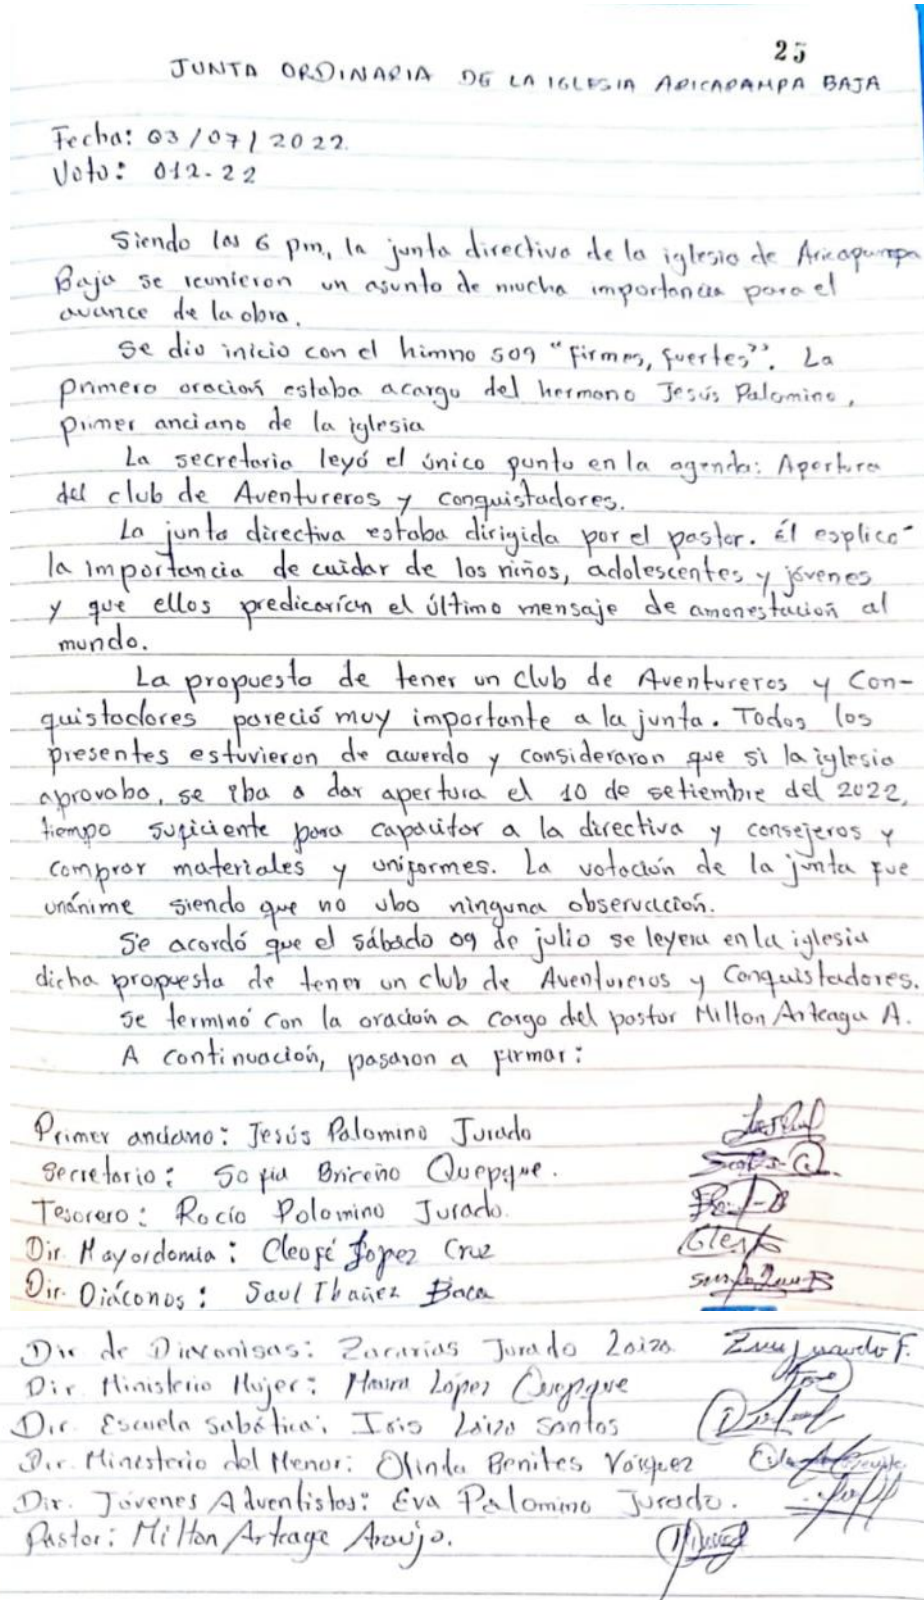 25
JUNTA ORDINARIA DE LA IGLESIA ARICAPAMPA BAJA
Fecha: 03/07/2022.
Voto: 012-22
Siendo las 6 pm, la junta directiva de la iglesia de Aricapampa
Baja se reunieron un asunto de mucha importancia para el
avance de la obra.
Se dio inicio con el himno 509 "firmes, fuertes". La
primera oración estaba acargo del hermano Jesús Palomino,
primer anciano de la iglesia
La secretaria leyó el único punto en la agenda: Apertura
del club de Aventureros y conquistadores.
La junta directiva estaba dirigida por el pastor. él esplicó
la importancia de cuidar de los niños, adolescentes y jóvenes
y que ellos predicarían el último mensaje de amonestación al
mundo.
La propuesta de tener un club de Aventureros y Con-
quistadores pareció muy importante a la junta. Todos los
presentes estuvieron de acuerdo y consideraron que si la iglesia
aprovaba, se iba a dar apertura el 10 de setiembre del 2022,
tiempo suficiente para capacitar a la directiva y consejeros y
comprar materiales y uniformes. La votación de la junta fue
unánime siendo que no ubo ninguna observación.
Se acordó que el sábado 09 de julio se leyera en la iglesia
dicha propuesta de tener un club de Aventureros y Conquistadores.
Se terminó con la oración a cargo del pastor Milton Arteaga A.
A continuación, pasaron a firmar:
Primer anciano: Jesús Palomino Jurado
Secretario: Sofia Briceño Quepque.
Tesorero: Rocío Palomino Jurado.
Dir. Mayordomia: Cleofé Lopez Cruz
Dir. Diáconos: Saul Ibañez Baca
Dir de Diaconisas: Zacarías Jurado Loiza
Dir. Ministerio Mujer: López Quepque
Dir. Escuela sabática: Iris Loiza Santos
Dir. Ministerio del Menor: Olinda Benites Vásquez
Dir. Jóvenes Adventistas: Eva Palomino Jurado.
Pastor: Milton Arteaga Araujo.